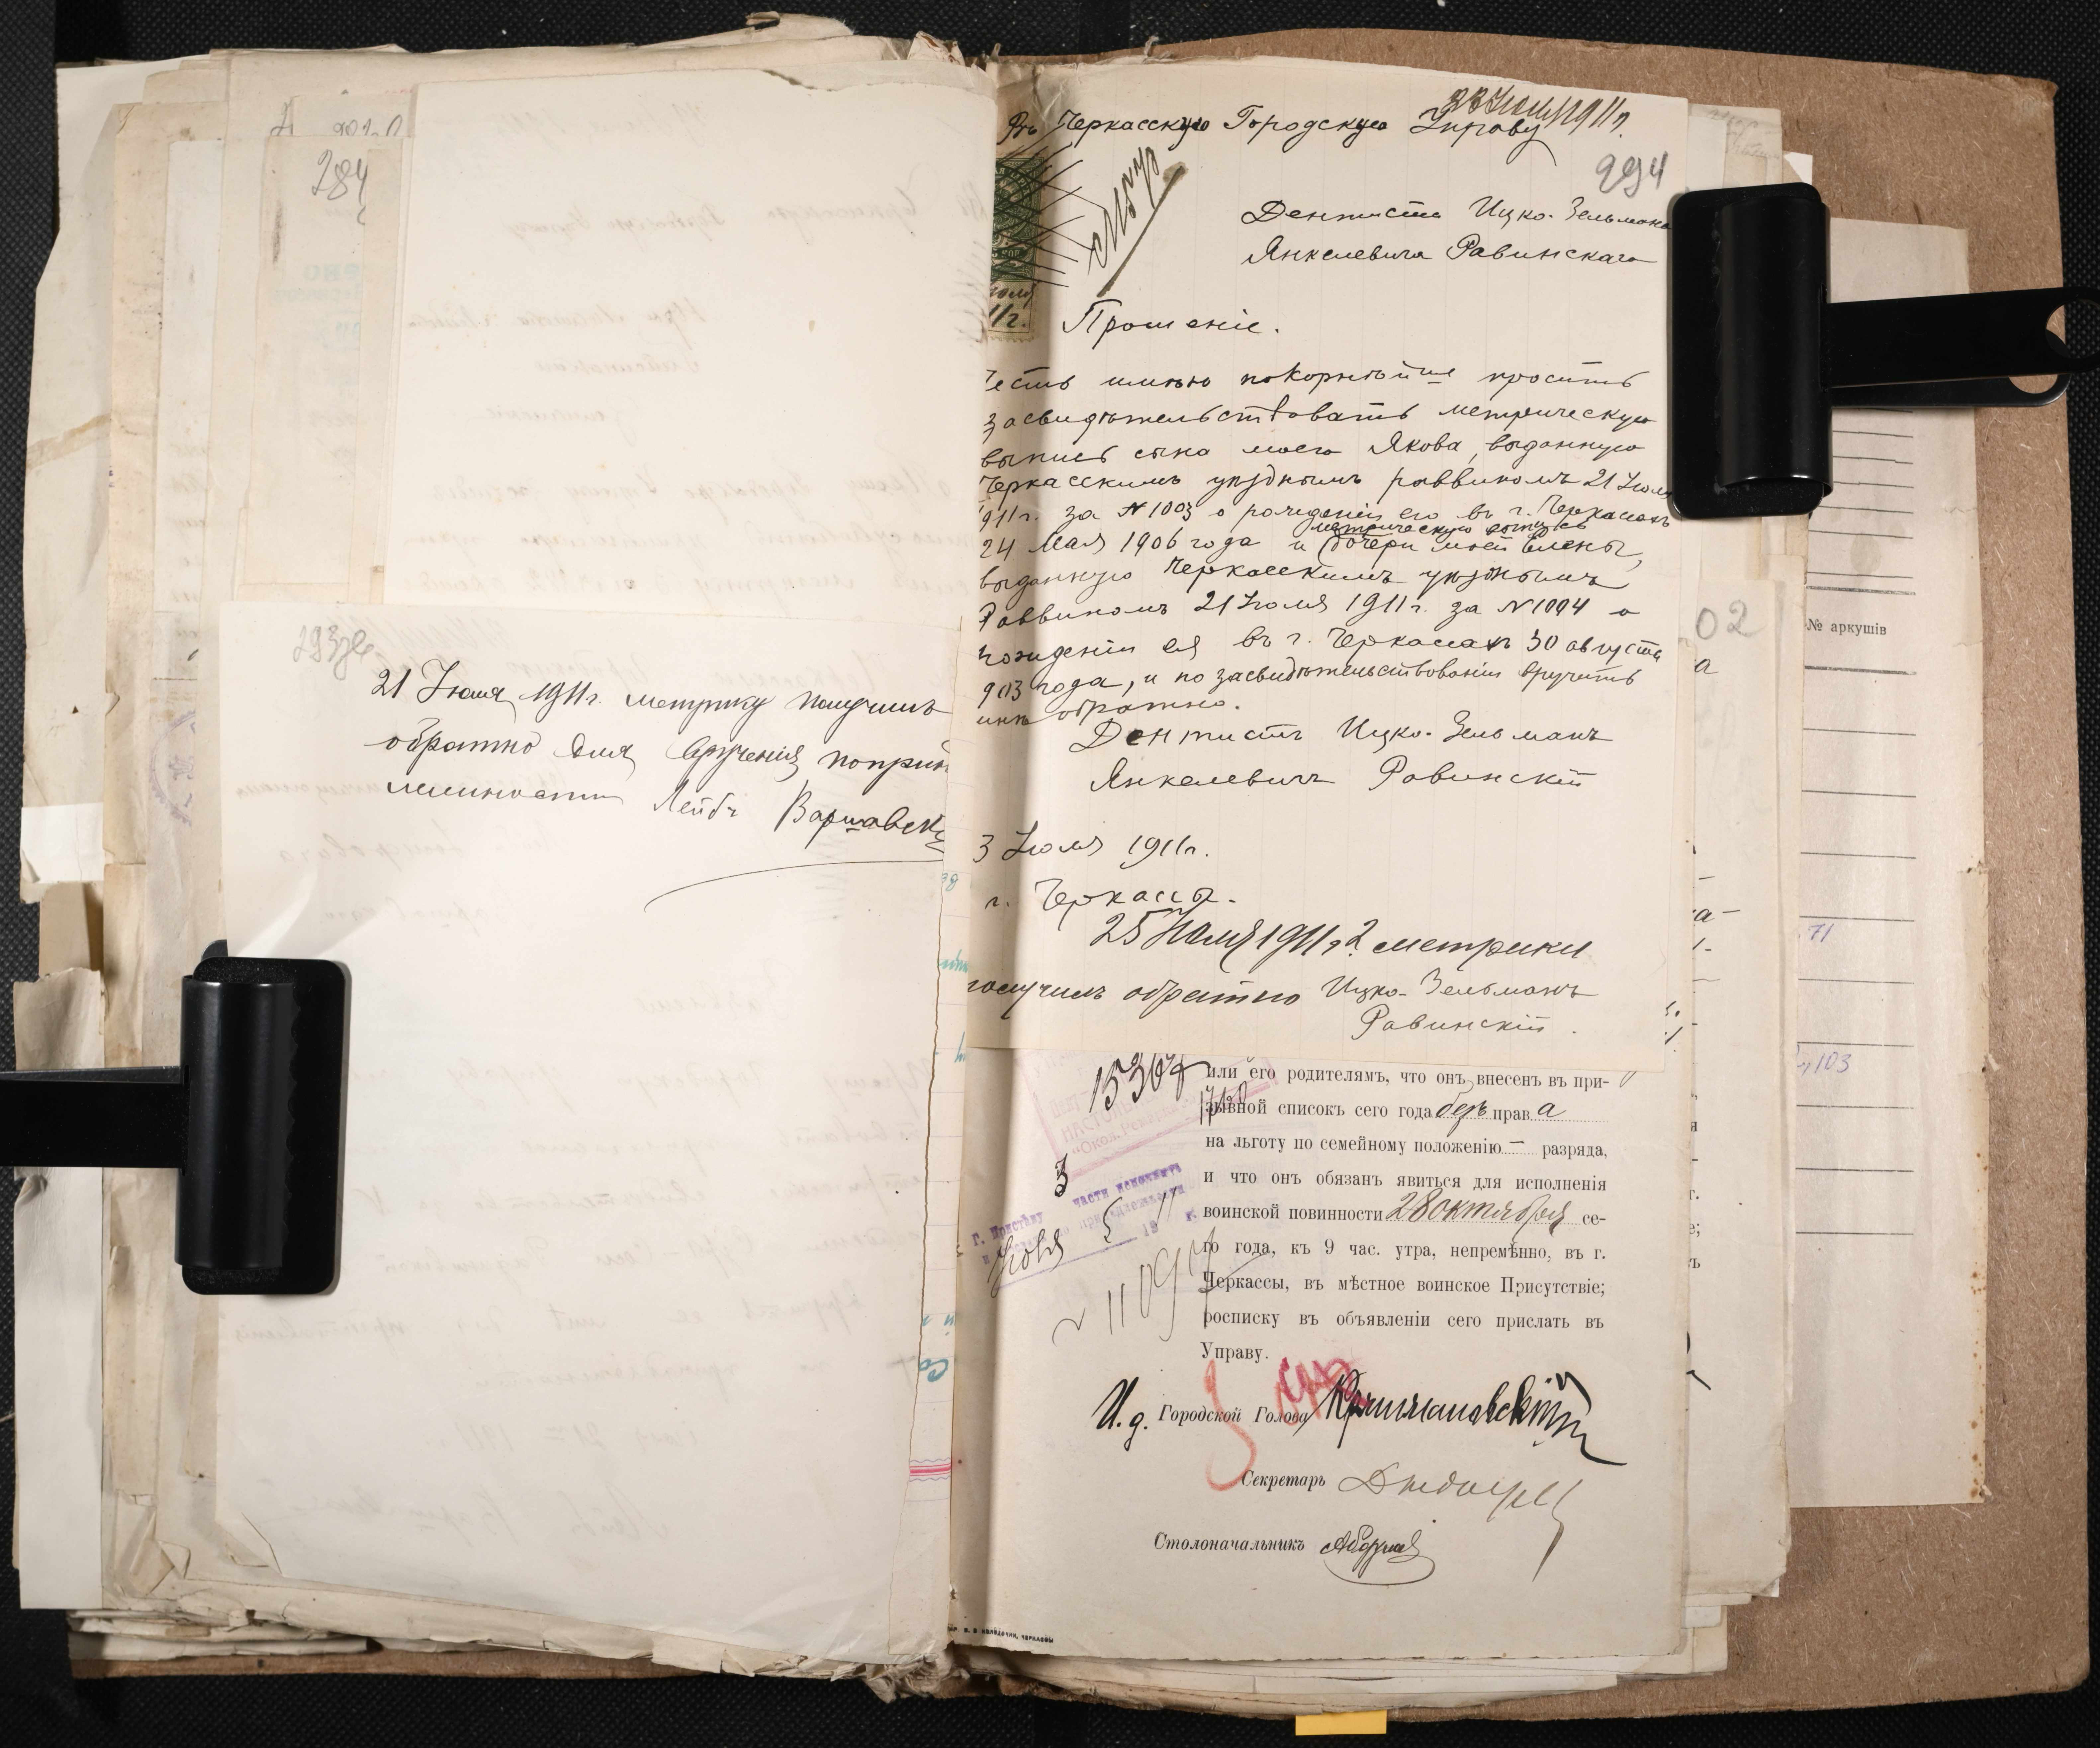 284
293 об
21 Июля 1911 г. метрику получилъ
обратно для врученія по прин
лежности Лейбъ Варшавск
Въ Черкасскую Городскую Управу
23 Июля 1911 г.
294
Дентиста Ицко-Зельмана
Янкелевича Равинскаго
Прошеніе.
Честь имѣю покорнѣйше просить
засвидѣтельствовать метрическую
выпись сына моего Якова, выданную
Черкасскимъ уѣзднымъ раввиномъ 21 Июля
1911 г. за № 1003 о рожденіи его въ г. Черкассахъ
метрическую выпись
24 Мая 1906 года и дочери моей Елены,
выданную Черкасскимъ уѣзднымъ
Раввиномъ 21 Июля 1911 г. за № 1004 о
рожденіи ея въ г. Черкассахъ 30 августа
903 года, и по засвидѣтельствованіи вручить
мнѣ обратно.
Дентистъ Ицко-Зельманъ
Янкелевичъ Равинскій
3 Июля 1911 г.
г. Черкассы.
25 Июля 1911 г. 2 метрики
получилъ обратно Ицко-Зельманъ
Равинскій.
или его родителямъ, что онъ внесенъ въ при-
зывной списокъ сего года безъ права
на льготу по семейному положенію — разряда,
и что онъ обязанъ явиться для исполненія
воинской повинности 28 октября се-
го года, къ 9 час. утра, непремѣнно, въ г.
Черкассы, въ мѣстное воинское Присутствіе;
росписку въ объявленіи сего прислать въ
Управу.
И. д. Городской Голова
Секретарь
Столоначальникъ
3
Г. Приставу части
№ 11091
02
№ аркушів
71
103